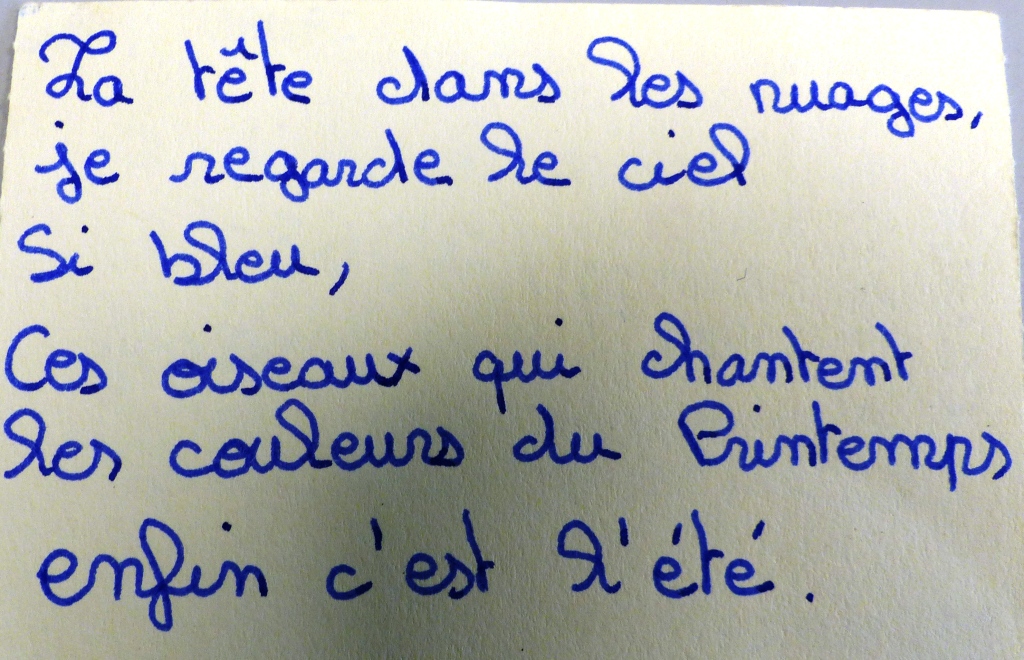 La tête dans les nuages,
je regarde le ciel
Si bleu,
Ces oiseaux qui chantent
les couleurs du Printemps
enfin c'est l'été.